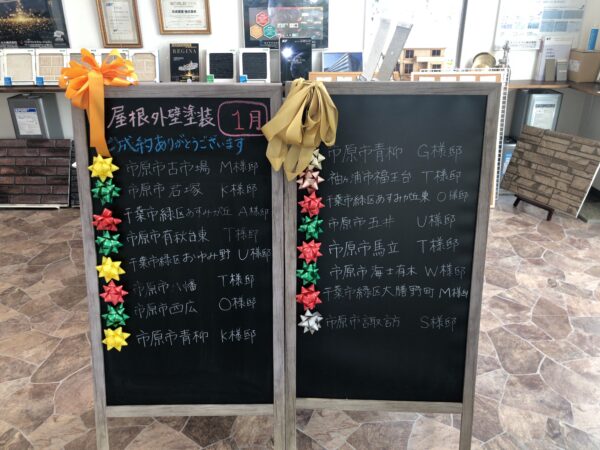 屋根外壁塗装 1月
ご成約ありがとうございます
市原市古市場 M様邸
市原市君塚 K様邸
千葉市緑区あすみが丘 A様邸
市原市有秋台東 T様邸
千葉市緑区おゆみ野 U様邸
市原市八幡 T様邸
市原市西広 O様邸
市原市青柳 K様邸
市原市青柳 G様邸
袖ヶ浦市福王台 T様邸
千葉市緑区あすみが丘東 O様邸
市原市五井 U様邸
市原市馬立 T様邸
市原市海士有木 W様邸
千葉市緑区大膳野町 M様邸
市原市諏訪 S様邸